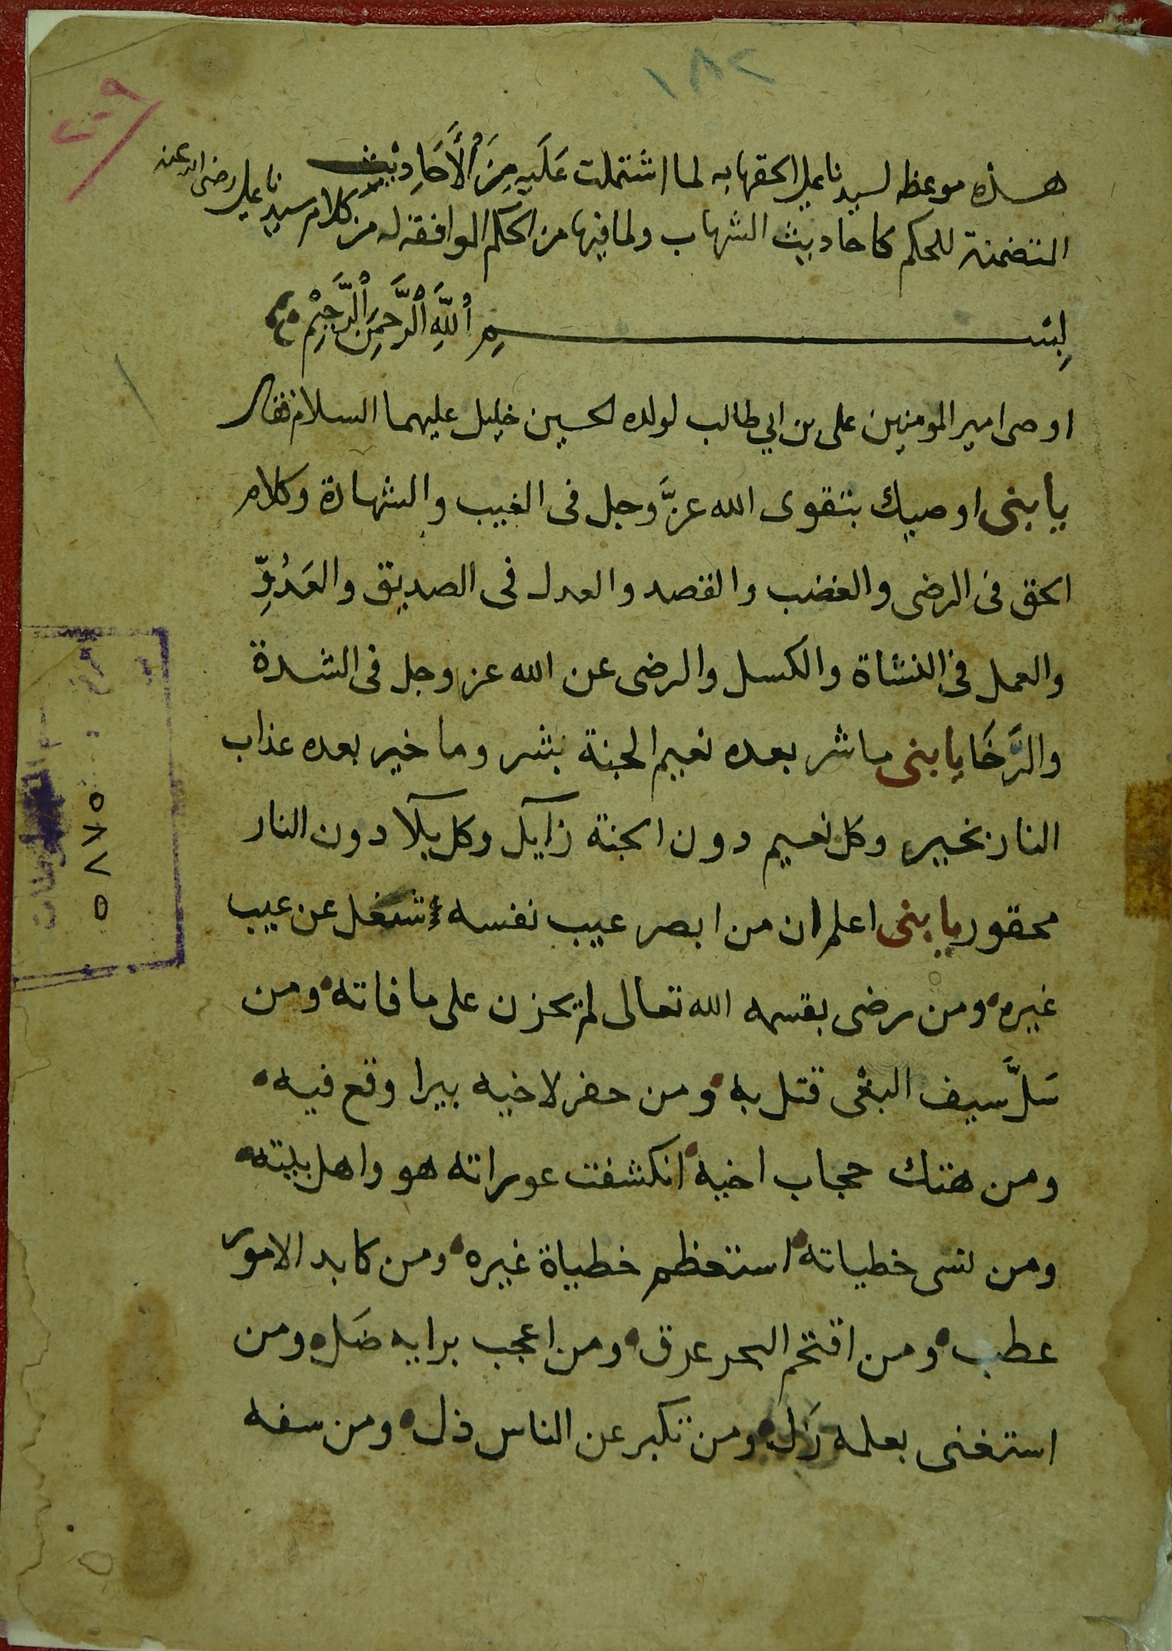 ١٨٢
٢٠٩
هذه موعظه لسيدنا على الحقها به لما اشتملت عَلَيهِ مِنَ ٱلْأَحَادِيْثِ
المتضمنة للحكم كاحاديث الشهاب ولما فيها من الحكم الموافقة له من كلام سيدنا على رضى الله عنه
بِسْمِ ٱللَّهِ ٱلرَّحمَنِ ٱلرَّحِيْمِ
اوصى امير المومنين على بن ابي طالب لولده الحسين خليل عليهما السلام فقال
يا بنى اوصيك بتقوى الله عزَّ وجل فى الغيب والشهادة وكلام
الحق فى الرضى والغضب والقصد والعدل فى الصديق والعَدُوِّ
والعمل فى النشاة والكسل والرضى عن الله عز وجل فى الشدة
والرَّخَا يا بنى ما شر بعده نعيم الجنة بشر وما خير بعده عذاب
النار بخير وكل نعيم دون الجنة زآيل وكل بلآ دون النار
محقور يا بنى اعلم ان من ابصر عيب نفسه شغل عن عيب
غيره ومن رضى بقسمه الله تعالى لم يحزن على ما فاته ومن
سَلَّ سيف البغى قتل به ومن حفر لاخيه بيرا وقع فيه
ومن هتك حجاب اخيه انكشفت عوراته هو واهل بيته
ومن نسى خطياته استعظم خطياة غيره ومن كابد الامور
عطب ومن اقتحم البحر غرق ومن اعجب برايه ضَل ومن
استغنى بعلمه زَل ومن تكبر عن الناس ذل ومن سفه
٥٨٧٥